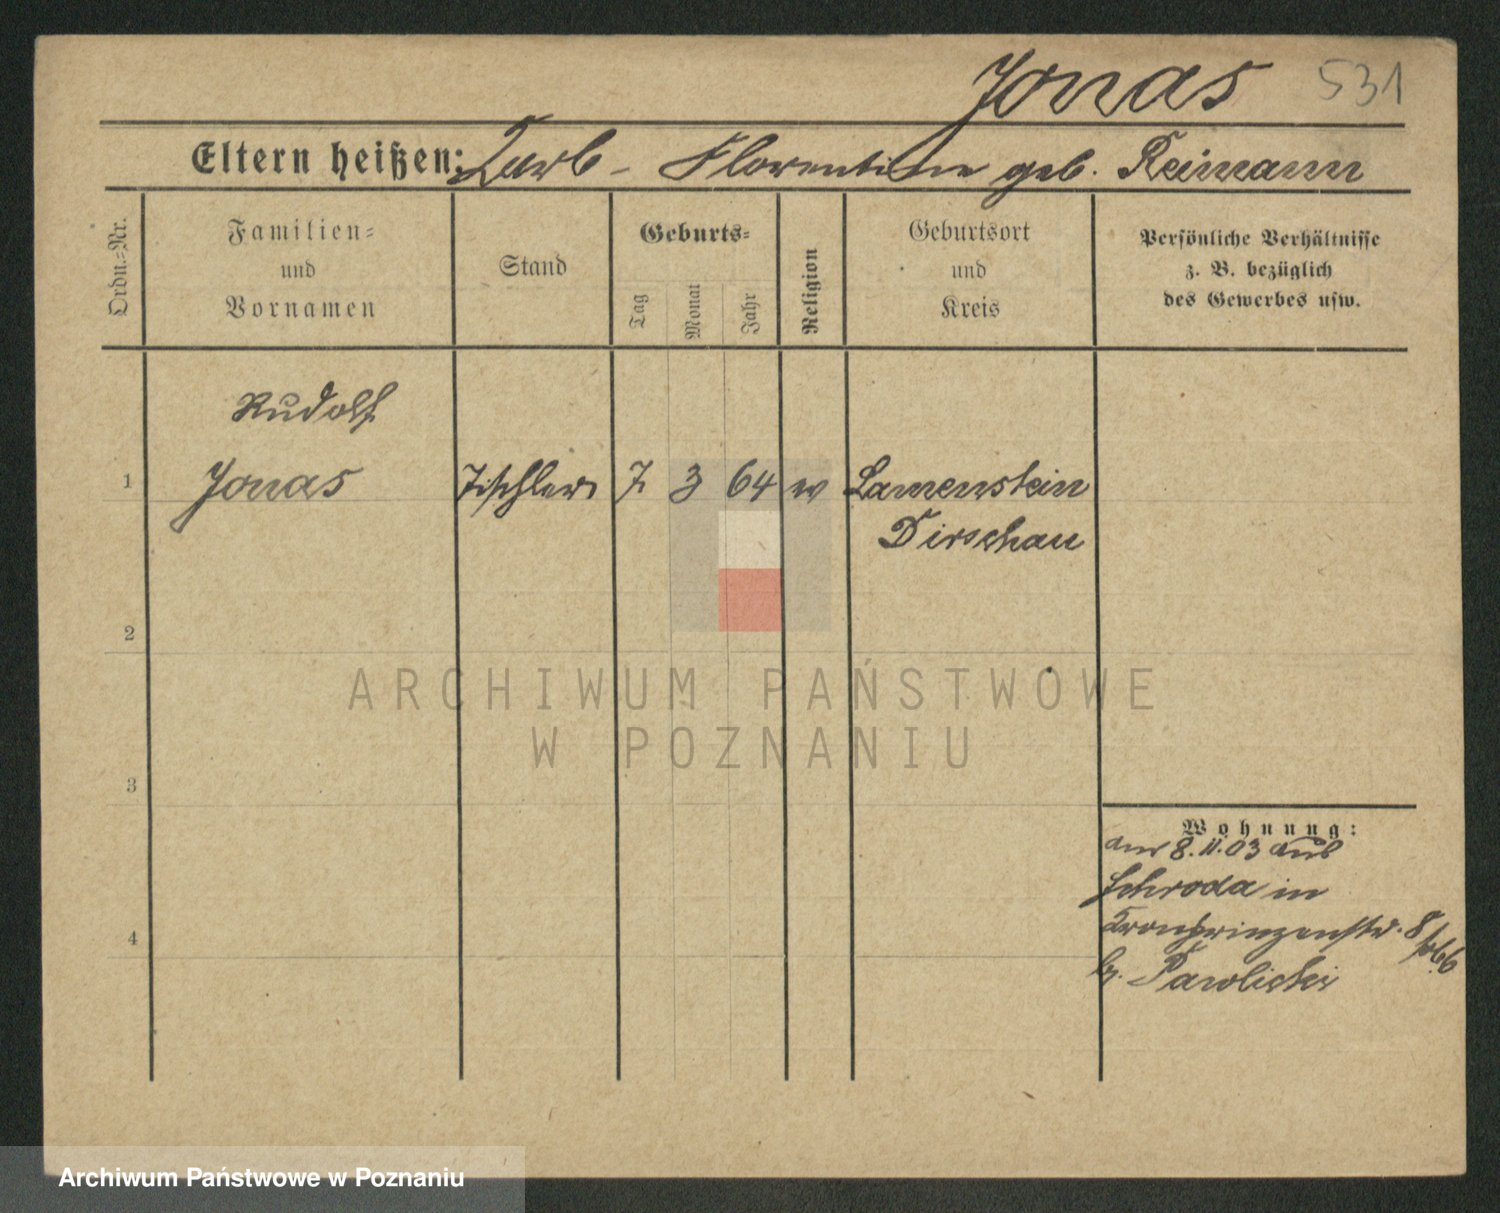 Jonas 531
Eltern heißen: Karl - Florentine geb. Reimann
Ordn.=Nr.
Familien=
und
Vornamen
Stand
Geburts=
Tag
Monat
Jahr
Religion
Geburtsort
und
Kreis
Persönliche Verhältnisse
z. B. bezüglich
des Gewerbes usw.
Rudolf
1 Jonas Tischler 7. 3 64 ev Lamenstein
Dirschau
2
3
4
Wohnung:
am 8.11.03 aus
Schroda in
Kronprinzenstr. 8
b. Pawlicki
ARCHIWUM PAŃSTWOWE
W POZNANIU
Archiwum Państwowe w Poznaniu